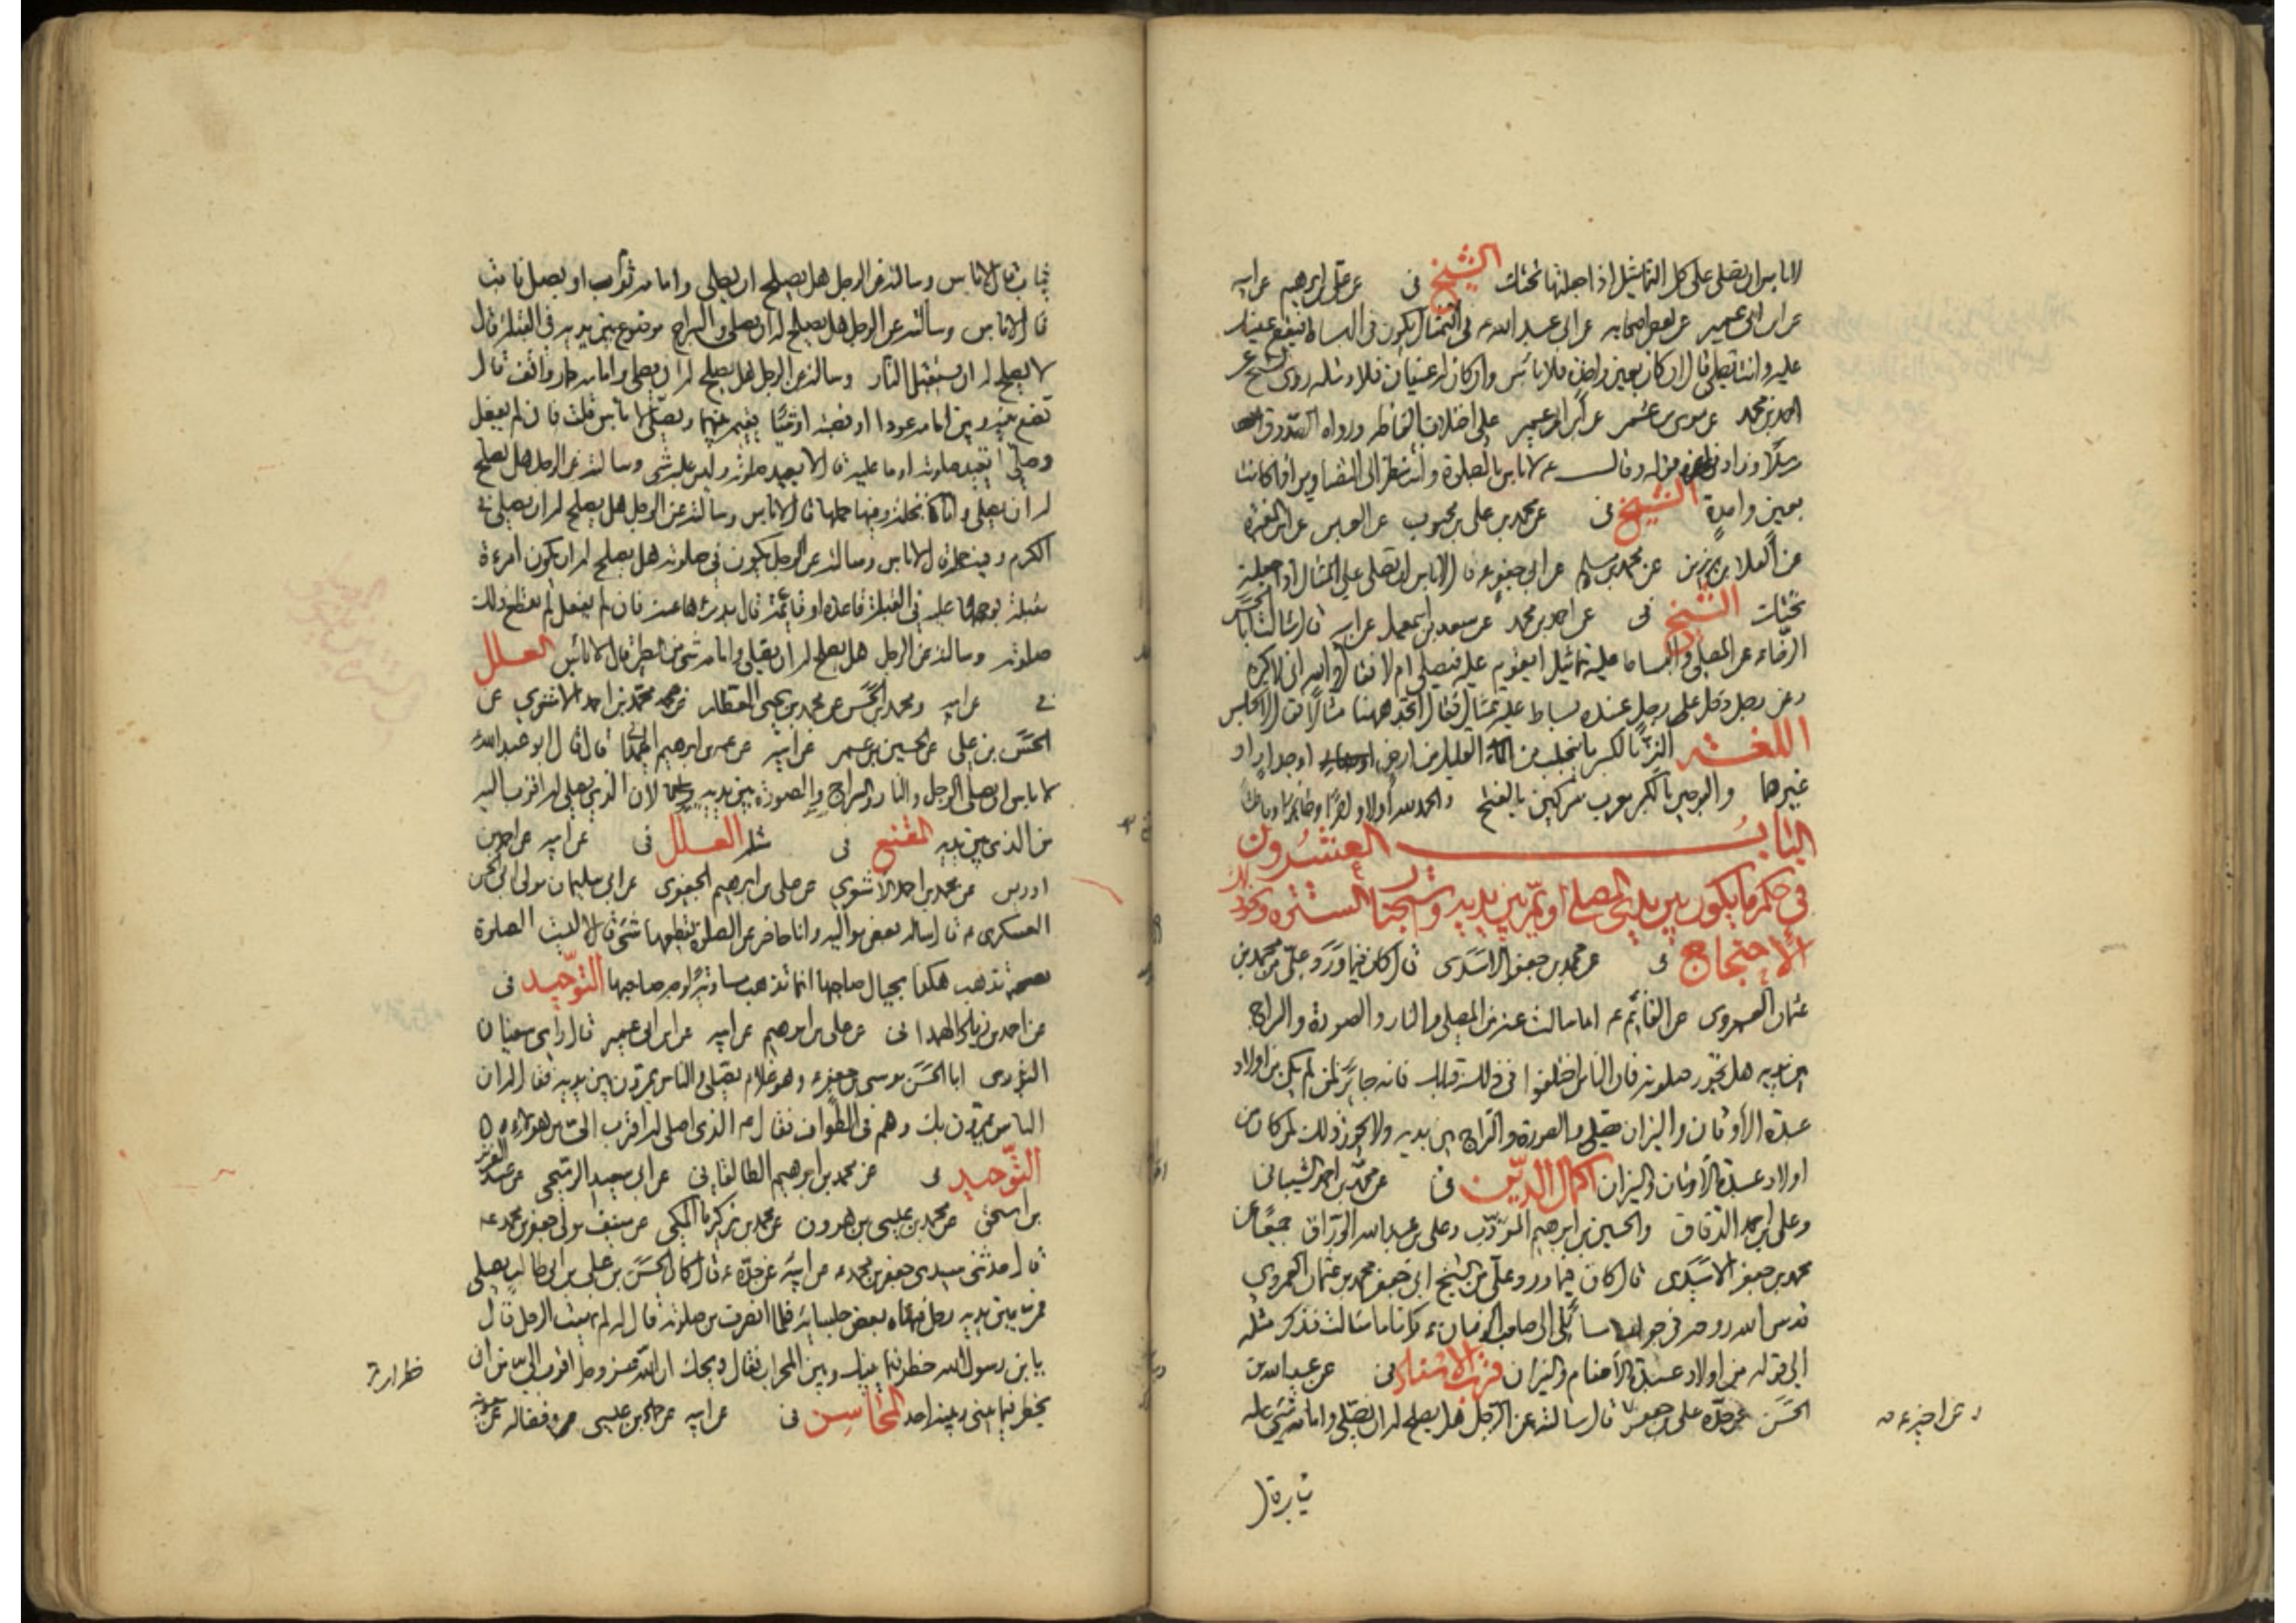 لا باس ان تصلى على كل التماثيل اذا جعلتها تحتك الشيخ فى عن على بن ابرهيم عن ابيه
عن ابن ابى عمير عن بعض اصحابه عن ابى عبد الله ع فى التمثال يكون فى البساط فيقع عينك
عليه وانت تصلى قال ان كان بعين واحدة فلا باس وان كان له عينان فلا
احمد بن محمد عن موسى بن عمر عن ابن ابى عمير على اختلاف الفاظه ورواه الصدوق
وقال ع لا باس بالصلوة وانت تنظر الى التصاوير اذا كانت
بعين واحدة الشيخ فى عن محمد بن على بن محبوب عن العباس عن ابن المغيرة
عن العلا بن رزين عن محمد بن مسلم عن ابى جعفر ع قال لا باس ان تصلى على المثال اذا جعلته
تحتك الشيخ فى عن احمد بن محمد عن سعد بن اسمعيل عن ابيه قال سالت ابا الحسن
الرضا ع عن المصلى والبساط عليه تماثيل ايقوم عليه فيصلى ام لا فقال والله انى لاكره
وعن رجل دخل على رجل عنده بساط عليه تمثال فقال اتجد ههنا مثالا فقال لا تجلس
اللغة النز بالكسر ما يتحلب من الماء القليل من ارض او جدار او
غيرهما والسرجين بالكسر معرب سركين بالفتح والحمد لله اولا واخرا
الباب العشرون
فى حكم ما يكون بين يدى المصلى او يمر بين يديه واستحباب السترة
الاحتجاج فى عن محمد بن جعفر الاسدى قال كان فيما ورد على من محمد بن
عثمان العمروى عن القائم ع اما ما سالت عنه من المصلى والنار والصورة والسراج
بين يديه هل تجوز صلوته فان الناس اختلفوا فى ذلك قبلك فانه جايز لمن لم يكن من اولاد
عبدة الاوثان والنيران يصلى والصورة والسراج بين يديه ولا يجوز ذلك لمن كان من
اولاد عبدة الاوثان والنيران اكمال الدين فى عن محمد بن احمد الشيبانى
وعلى بن احمد الدقاق والحسين بن ابرهيم المؤدب وعلى بن عبد الله الوراق جميعا عن
محمد بن جعفر الاسدى قال كان فيما ورد على من الشيخ ابى جعفر محمد بن عثمان العمروى
قدس الله روحه فى جواب مسائلى الى صاحب الزمان ع واما ما سالت فذكر مثله
الى قوله من اولاد عبدة الاصنام والنيران قرب الاسناد فى عن عبد الله بن
الحسن عن جده على بن جعفر قال سالته عن الرجل هل يصلح له ان يصلى وامامه شىء عليه
عن اخيه ع
ثياب قال لا باس وسالته عن الرجل هل يصلح ان يصلى وامامه ثوم او بصل نابت
قال لا باس وسالته عن الرجل هل يصلح له ان يصلى والسراج موضوع بين يديه فى القبلة قال
لا يصلح له ان يستقبل النار وسالته عن الرجل هل يصلح له ان يصلى وامامه حمار واقف قال
تضع بينه وبين امامه عودا او قصبة او شيئا يقيم بينهما ويصلى لا باس قلت فان لم يفعل
وصلى ايعيد صلوته او ما عليه قال لا يعيد صلوته وليس عليه شى وسالته عن الرجل هل يصلح
له ان يصلى وامامه نخلة وفيها حملها قال لا باس وسالته عن الرجل هل يصلح له ان يصلى فى
الكرم وفيه حمله قال لا باس وسالته عن الرجل يكون فى صلوته هل يصلح له ان يكون امرءة
مقبلة بوجهها عليه فى القبلة قاعدة او قائمة قال يدرءها عنه فان لم يفعل لم يقطع ذلك
صلوته وسالته عن الرجل هل يصلح له ان يصلى وامامه شى من الطير قال لا باس العلل
فى عن ابيه ومحمد بن الحسن عن محمد بن يحيى العطار عن محمد بن احمد الاشعرى عن
الحسن بن على عن الحسين بن عمر عن ابيه عن عمر بن ابرهيم الهمدانى قال قال ابو عبد الله ع
لا باس ان يصلى الرجل والنار والسراج والصورة بين يديه لان الذى يصلى له اقرب اليه
من الذى بين يديه المقنع فى مثله العلل فى عن ابيه عن احمد بن
ادريس عن محمد بن احمد الاشعرى عن على بن ابرهيم الجعفرى عن ابى سليمان مولى ابى الحسن
العسكرى ع قال ساله بعض مواليه وانا حاضر عن الصلوة يقطعها شئ قال لا ليست الصلوة
تذهب هكذا بحيال صاحبها انما تذهب مساوية لوجه صاحبها التوحيد فى
عن احمد بن زياد الهمدانى عن على بن ابرهيم عن ابيه عن ابن ابى عمير قال راى سفيان
الثورى ابا الحسن موسى بن جعفر ع وهو غلام يصلى والناس يمرون بين يديه فقال له ان
الناس يمرون بك وهم فى الطواف فقال ع الذى اصلى له اقرب الى من هؤلاء
التوحيد فى عن محمد بن ابرهيم الطالقانى عن ابى سعيد الرميحى عن عبد العزيز
بن اسحق عن محمد بن عيسى بن هرون عن محمد بن زكريا المكى عن منيف مولى جعفر بن محمد ع
قال حدثنى سيدى جعفر بن محمد ع عن ابيه عن جده ع قال كان الحسن بن على بن ابى طالب يصلى
فمر بين يديه رجل فنهاه بعض جلسائه فلما انصرف من صلوته قال له لم نهيت الرجل قال
يا بن رسول الله خطر فيما بينك وبين المحراب فقال ويحك ان الله عز وجل اقرب الى من ان
يخطر فيما بينى وبينه احد المحاسن فى عن ابيه عن حماد بن عيسى وفضالة عن معوية